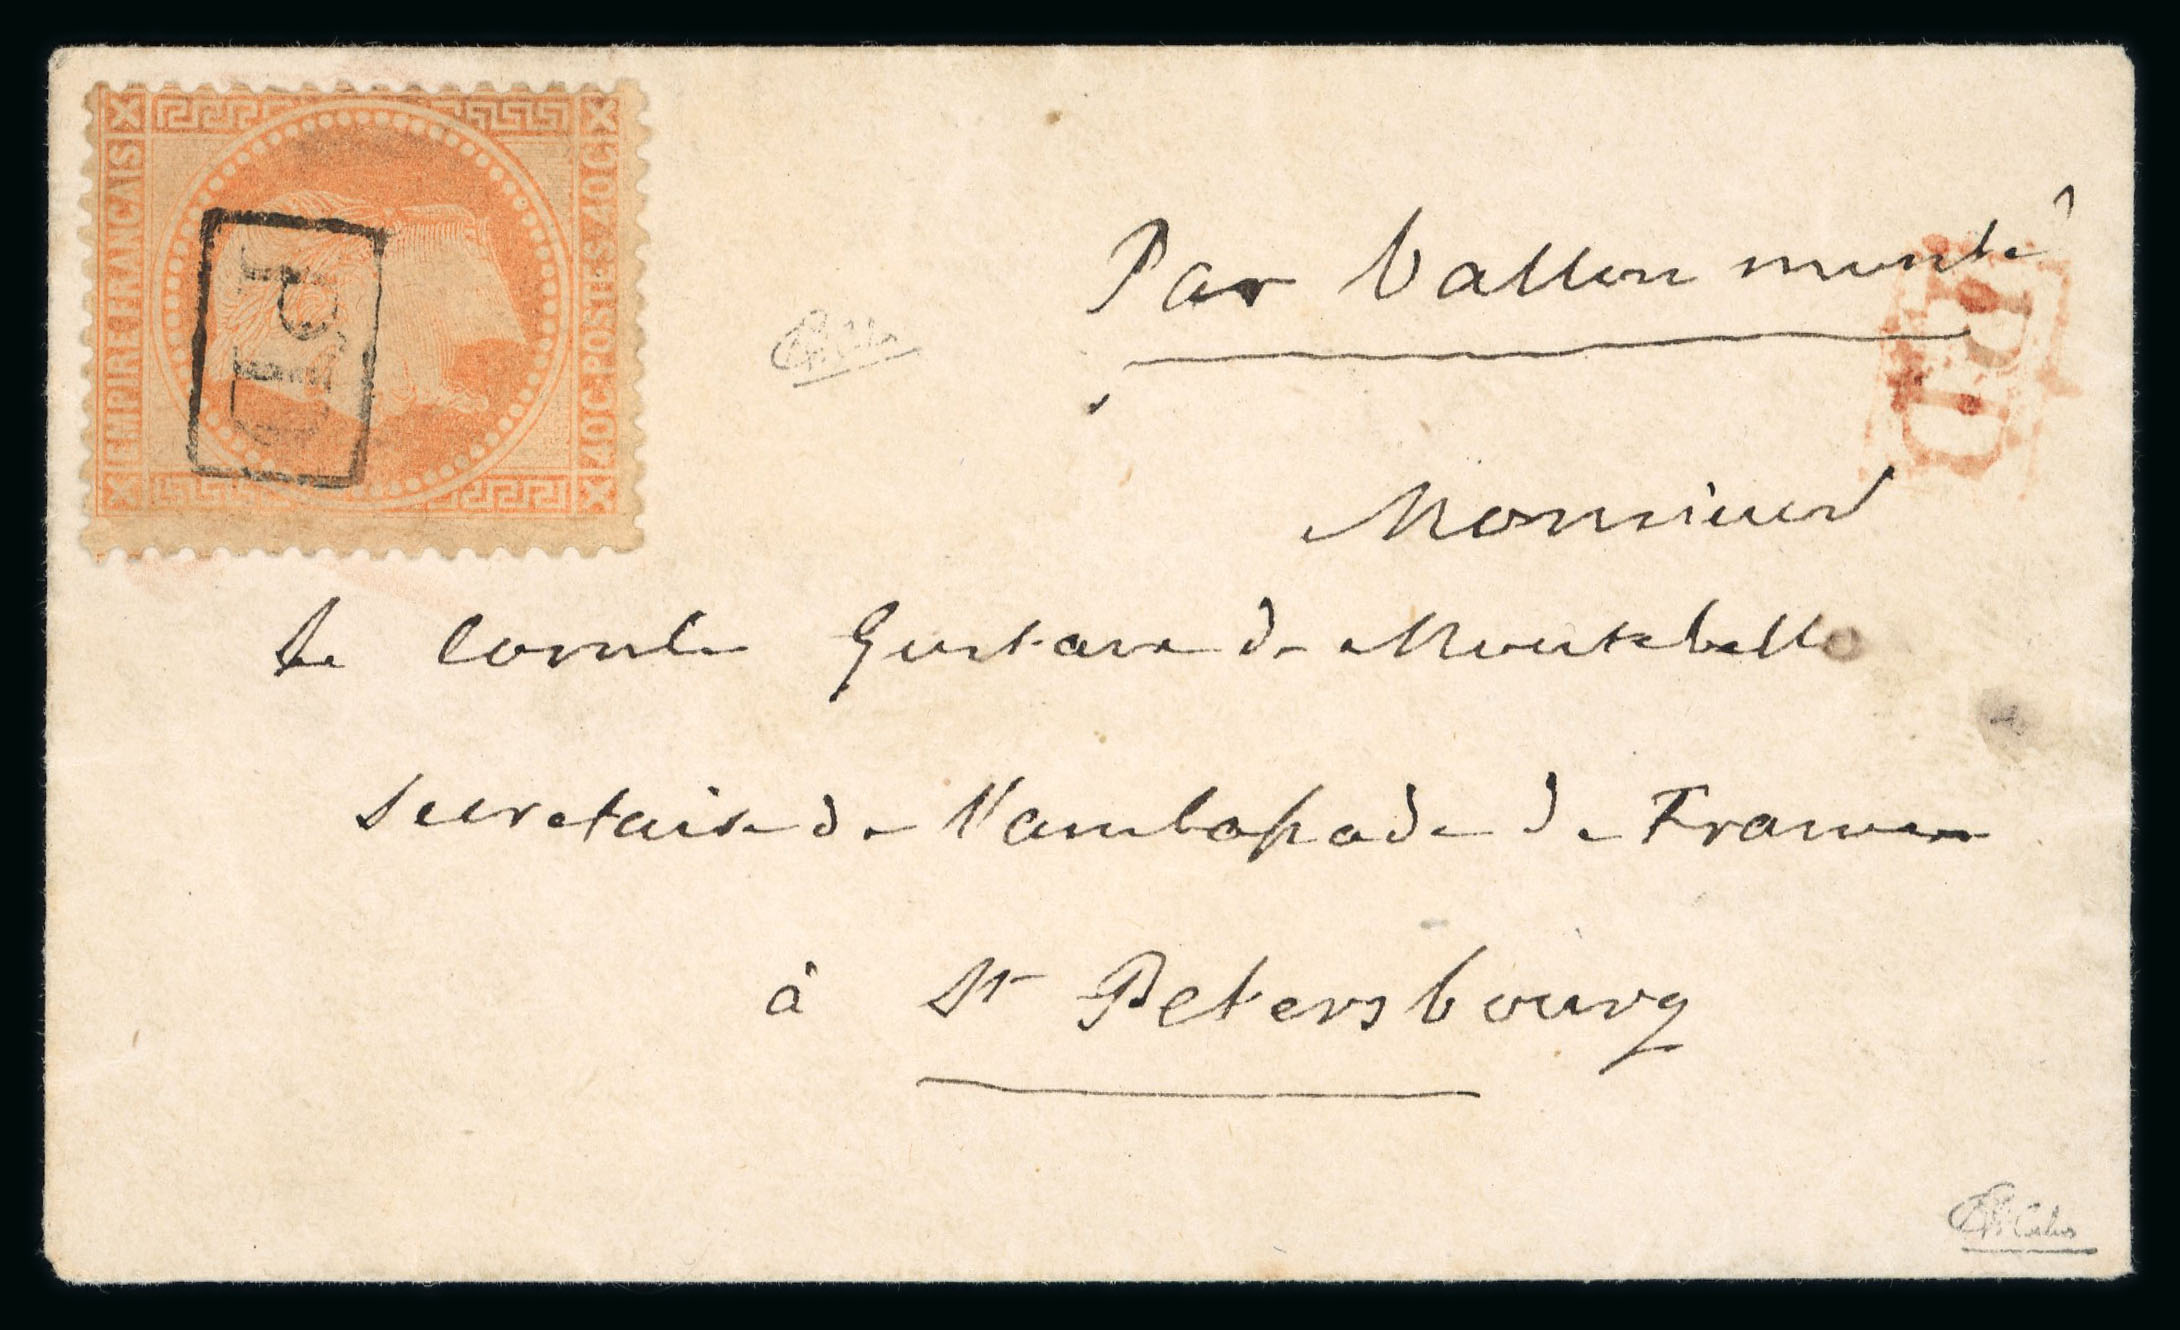 EMPIRE FRANÇAIS
40 C. POSTES 40 C
PD
Par ballon monté
PD
Monsieur
le Comte Gustave de Montebello
secretaire de l'ambassade de France
à St Petersbourg